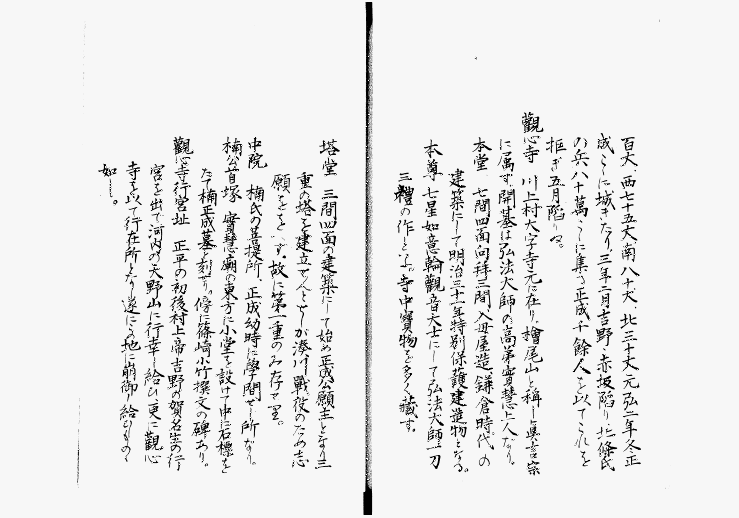 百丈、西七十五丈、南八十丈、北三十丈、元弘二年冬正
成ここに城きたり、三年二月吉野、赤坂陷り北條氏
の兵八十萬ここに集る正成千餘人を以てこれを
拒ぎ五月陷りつ。
觀心寺 川上村大字寺元に在り、檜尾山と稱し眞言宗
に属す、開基は弘法大師の高弟實慧上人なり。
本堂 七間四面向拜三間入母屋造鎌倉時代の
建築にして明治三十一年特別保護建造物となる。
本尊 七星如意輪觀音大士にして弘法大師一刀
三禮の作と云ふ。寺中寶物を多く藏す。
塔堂 三間四面の建築にして始め正成公願主となり三
重の塔を建立せんとせしが湊川戰役のため志
願ををこず。故に第一重のみ存て里。
中院 楠氏の菩提所、正成幼時に學問せし所なり。
楠公首塚 實慧廟の東方に小堂を設けて中に石標を
たて楠正成墓と刻す。傍に篠崎小竹撰文の碑あり。
觀心寺行宮址 正平の初後村上帝吉野の賀名生の行
宮を出で河内の天野山に行幸し給ひ更に觀心
寺を以て行在所となり遂にこの地に崩御し給ひもの
如し。